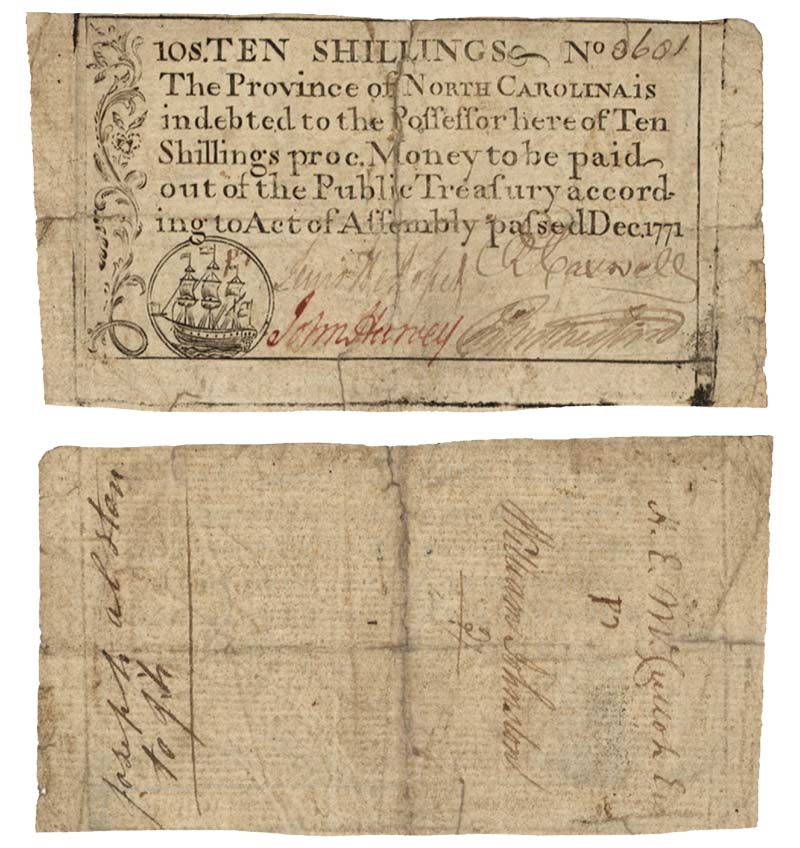 10s. TEN SHILLINGS No 8601
The Province of NORTH CAROLINA is
indebted to the Poſſeſſor here of Ten
Shillings proc. Money to be paid
out of the Public Treaſury accord-
ing to Act of Aſſembly paſsed Dec. 1771
Lewis H. De Rosset R Caswell
John Harvey
joseph alston
William Johnston
H. E. McCulloh